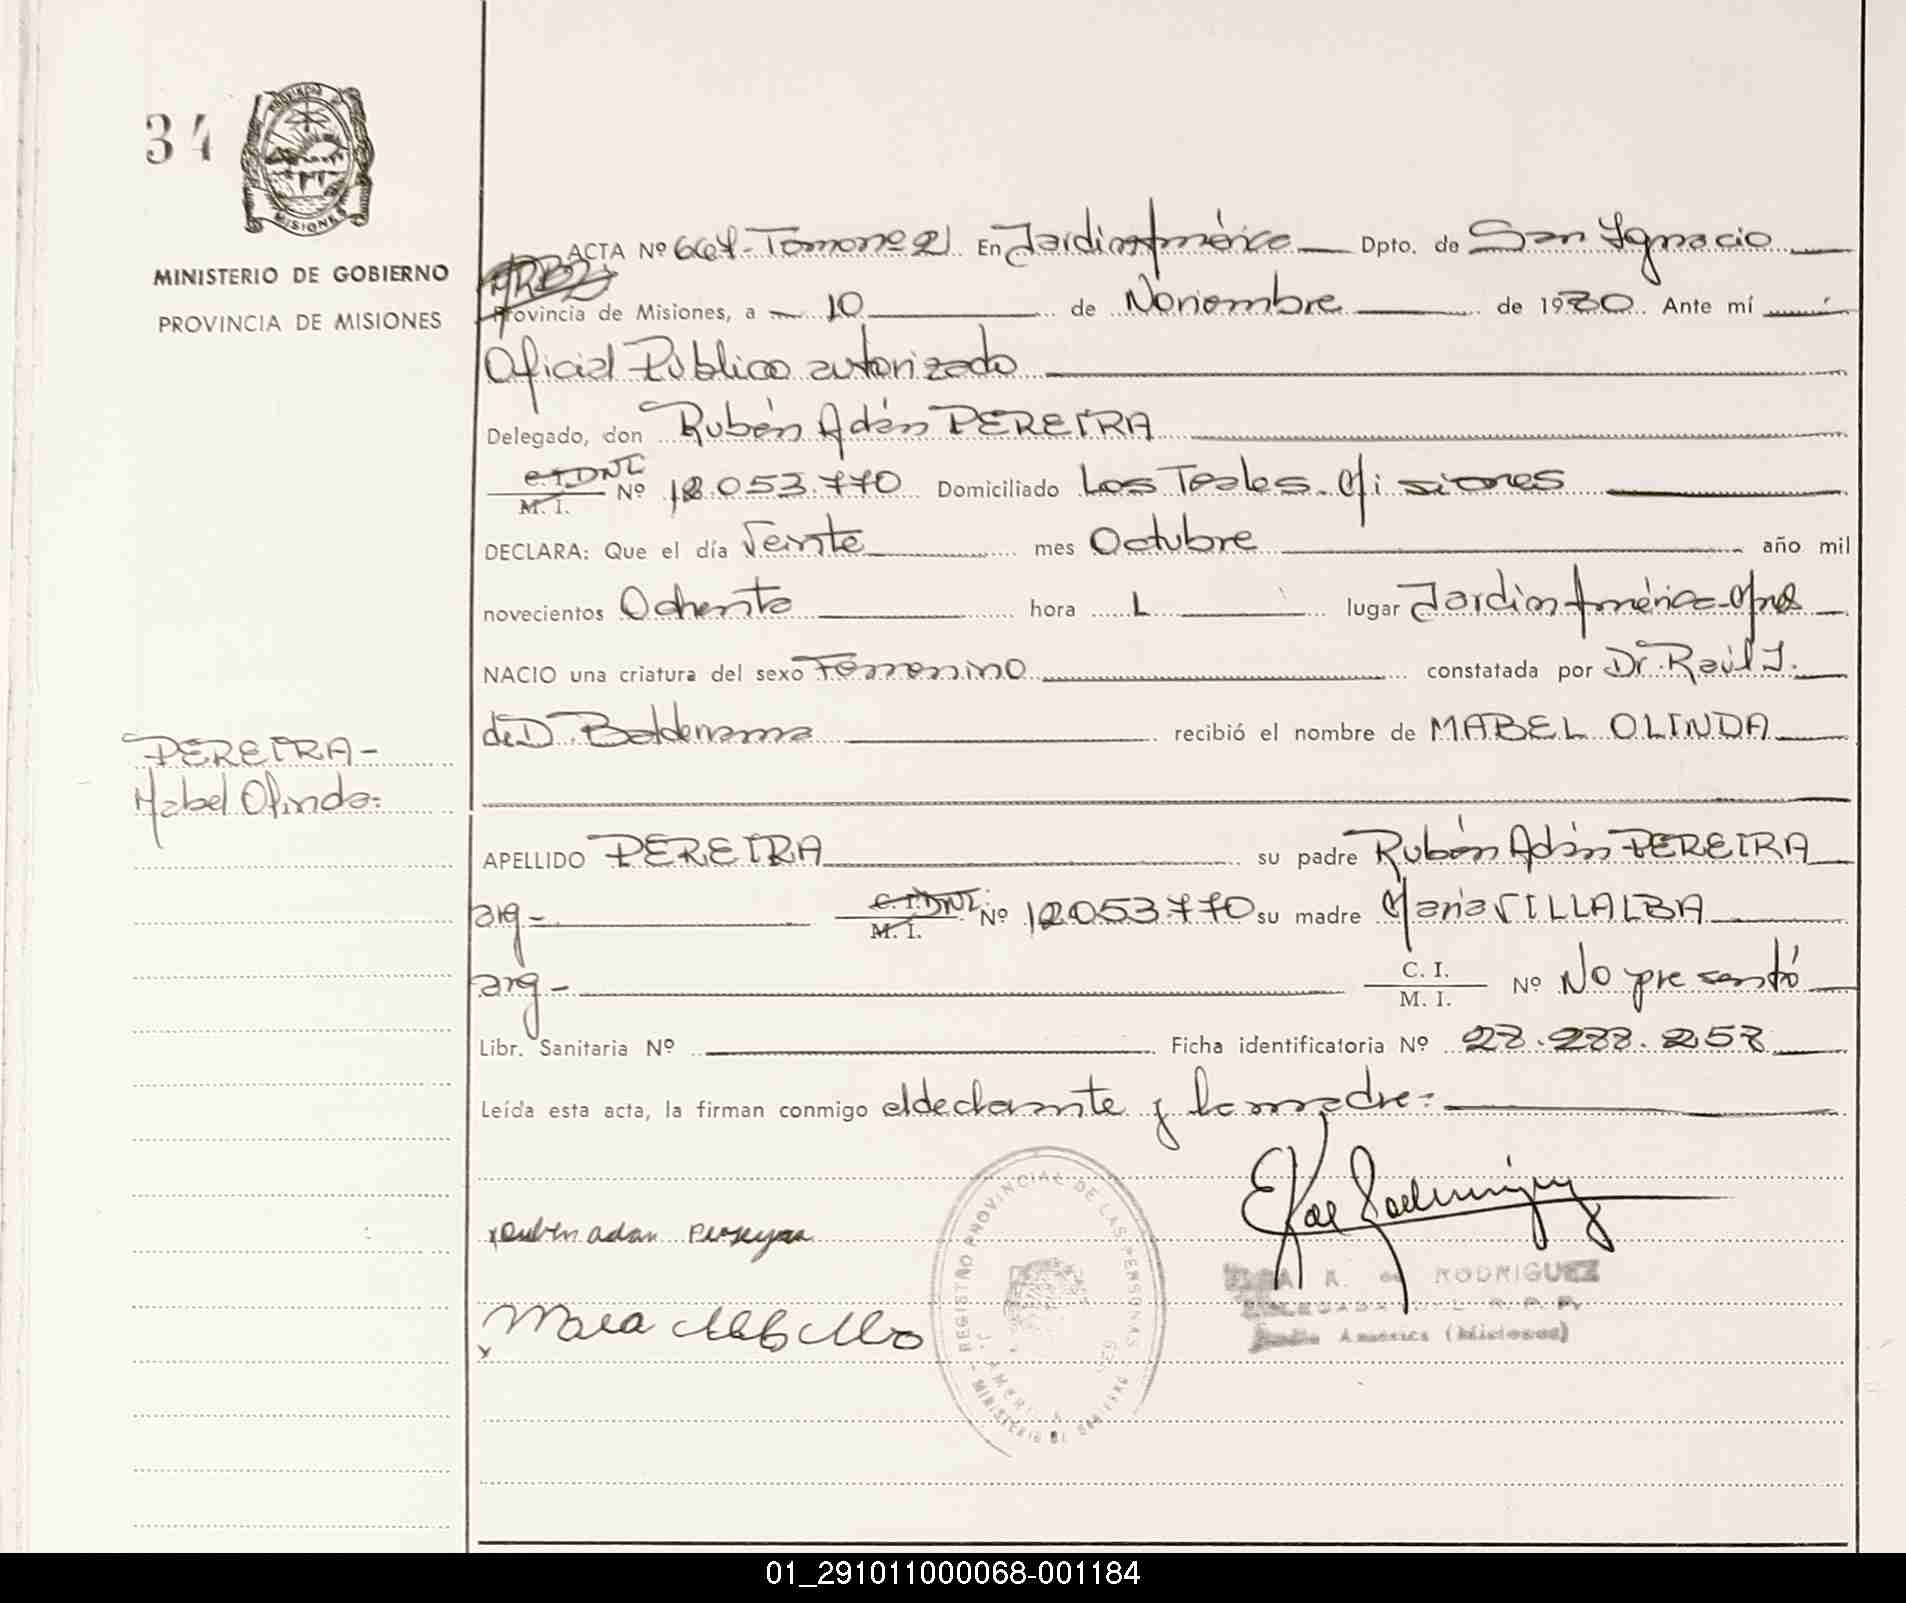 34
MINISTERIO DE GOBIERNO
PROVINCIA DE MISIONES
ACTA Nº 664-Tomo nº 2 En Jardín América Dpto. de San Ignacio
Provincia de Misiones, a 10 de Noviembre de 1980. Ante mí
Oficial Público autorizado
Delegado, don Rubén Adán PEREIRA
C.I. DNI
M. I. Nº 12.053.770 Domiciliado Los Teales-Misiones
DECLARA: Que el día Veinte mes Octubre año mil
novecientos Ochenta hora 1 lugar Jardín América-Mnes
NACIO una criatura del sexo Femenino constatada por Dr. Raúl J.
de D. Balderrama recibió el nombre de MABEL OLINDA
PEREIRA-
Mabel Olinda-
APELLIDO PEREIRA su padre Rubén Adán PEREIRA
arg- C.I. DNI
M. I. Nº 12053770 su madre María VILLALBA
arg- C. I.
M. I. Nº No presentó
Libr. Sanitaria Nº Ficha identificatoria Nº 28.288.258
Leída esta acta, la firman conmigo el declarante y la madre-
Ruben adan Pereyra
REGISTRO PROVINCIAL DE LAS PERSONAS
MINISTERIO DE GOBIERNO
RODRIGUEZ
América (Misiones)
01_291011000068-001184